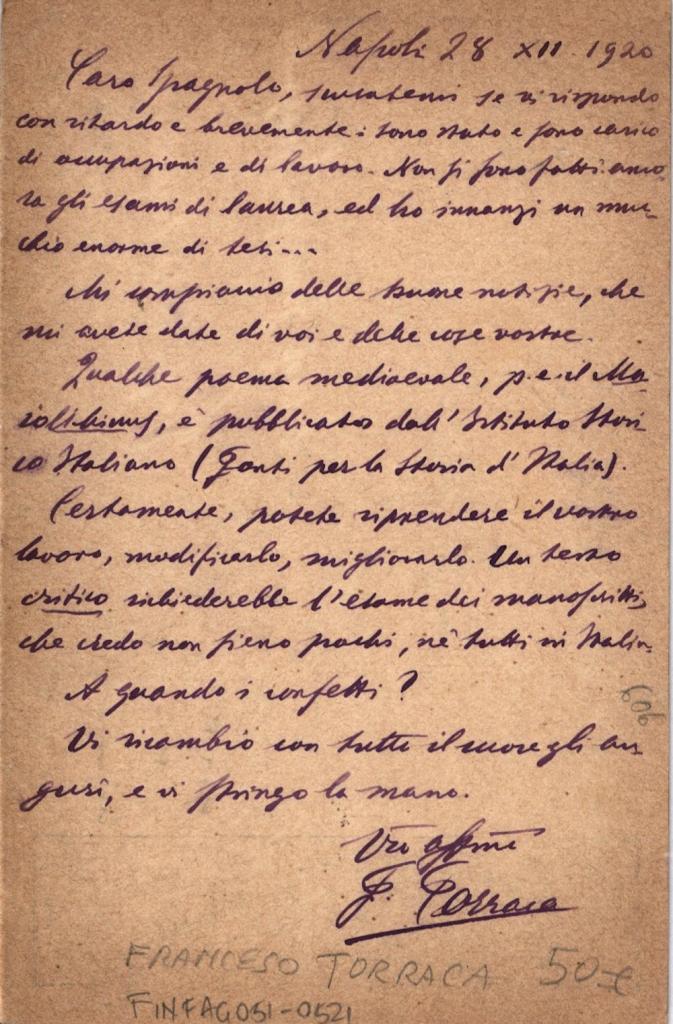 Napoli 28 XII 1920
Caro Spagnolo, scusatemi se vi rispondo
con ritardo e brevemente: sono stato e sono carico
di occupazioni e di lavoro. Non si sono fatti anco-
ra gli esami di laurea, ed ho innanzi un muc-
chio enorme di tesi...
Mi compiaccio delle buone notizie, che
mi avete date di voi e delle cose vostre.
Qualche poema mediaevale, p. e. il
è pubblicato dall' Istituto Stori-
co Italiano (Fonti per la Storia d' Italia).
Certamente, potete riprendere il vostro
lavoro, modificarlo, migliorarlo. Un testo
critico richiederebbe l'esame dei manoscritti,
che credo non sieno pochi, nè tutti in Italia.
A quando i confetti?
Vi ricambio con tutto il cuore gli au-
guri, e vi stringo la mano.
Vro affmo
F. Torraca
FRANCESO TORRACA 50£
FINFAG051-0521